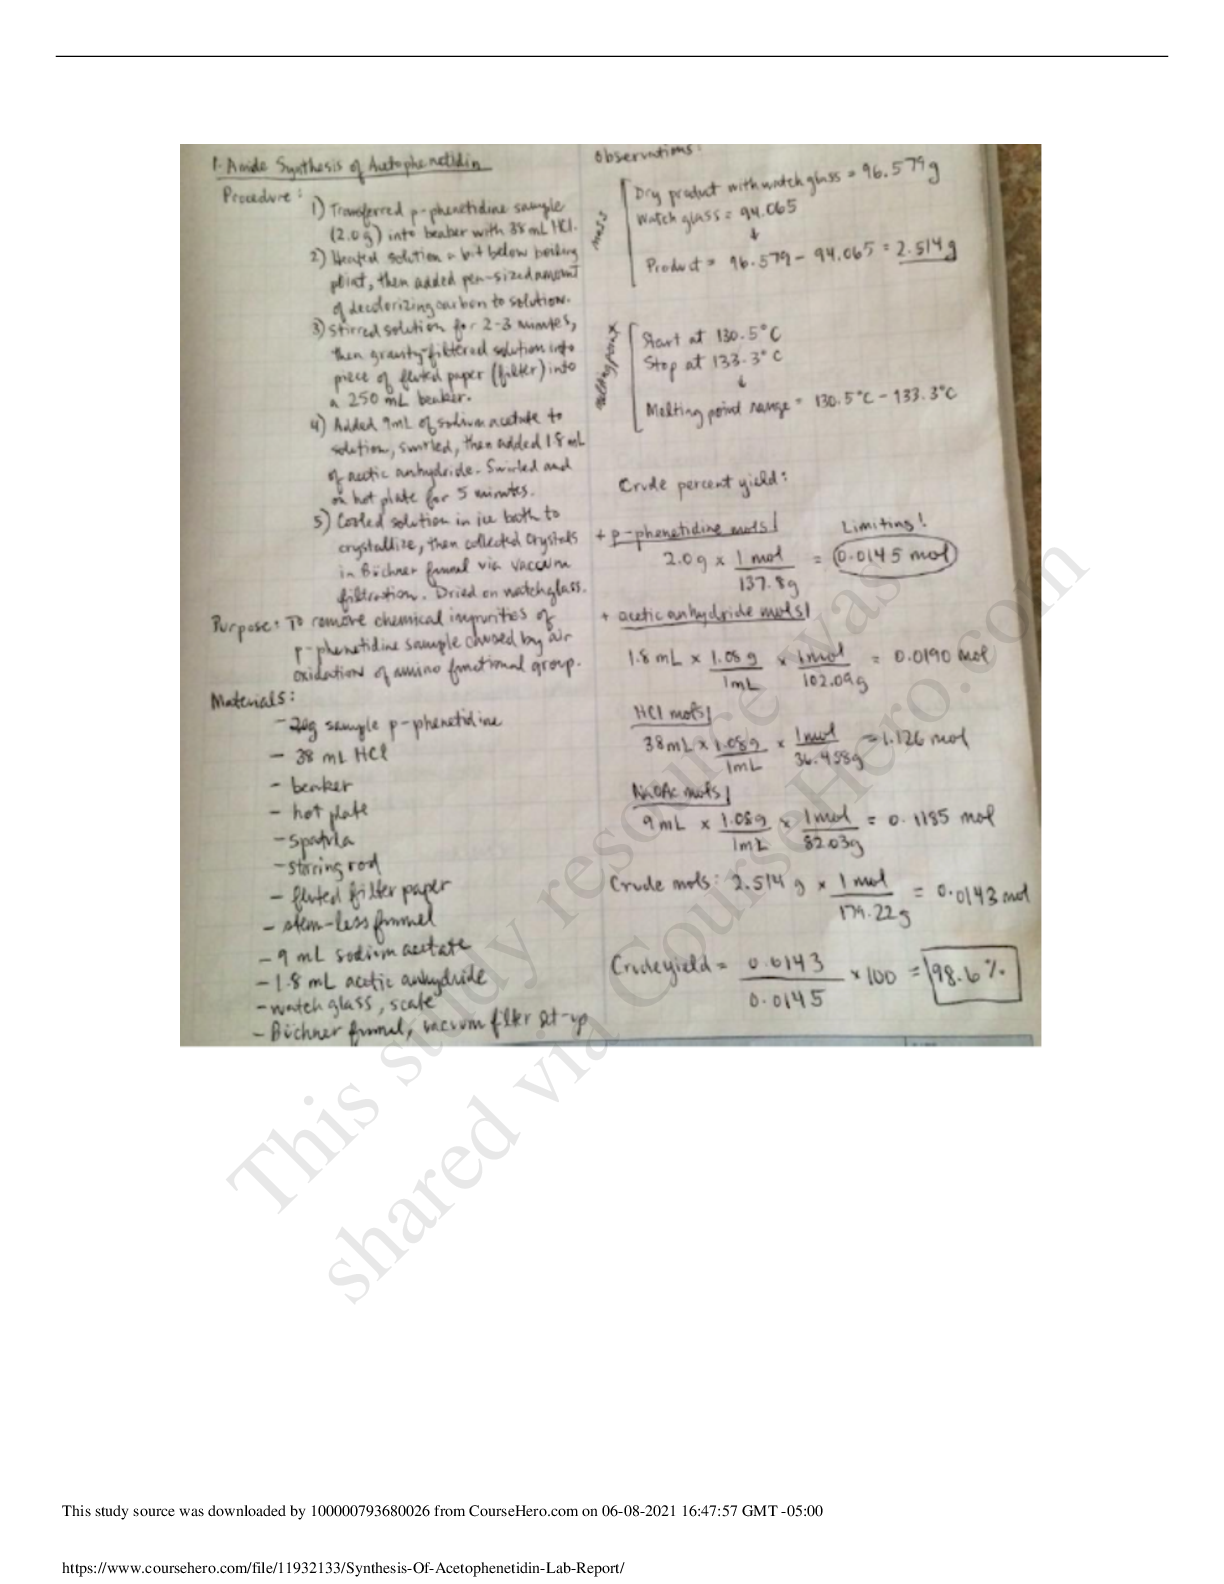 1. Amide Synthesis of Acetophenetidin
Procedure:
1) Transferred p-phenetidine sample
(2.0g) into beaker with 38 mL HCl.
2) Heated solution a bit below boiling
point, then added pea-sized amount
of decolorizing carbon to solution.
3) Stirred solution for 2-3 minutes,
then gravity-filtered solution into
piece of fluted paper (filter) into
a 250 mL beaker.
4) Added 9mL of sodium acetate to
solution, swirled, then added 1.8 mL
of acetic anhydride. Swirled and
on hot plate for 5 minutes.
5) Cooled solution in ice bath to
crystallize, then collected crystals
in Büchner funnel via vaccum
filtration. Dried on watchglass.
Purpose: To remove chemical impurities of
p-phenetidine sample caused by air
oxidation of amino functional group.
Materials:
- 2.0g sample p-phenetidine
- 38 mL HCl
- beaker
- hot plate
- spatula
- stirring rod
- fluted filter paper
- stem-less funnel
- 9 mL sodium acetate
- 1.8 mL acetic anhydride
- watch glass, scale
- Büchner funnel, vacuum filter set-up
Observations:
mass
Dry product with watch glass = 96.579g
Watch glass = 94.065
↓
Product = 96.579 - 94.065 = 2.514g
melting point
Start at 130.5°C
Stop at 133.3°C
↓
Melting point range = 130.5°C - 133.3°C
Crude percent yield:
+ p-phenetidine mols
Limiting!
2.0g × 1 mol / 137.8g = 0.0145 mol
+ acetic anhydride mols
1.8 mL × 1.08 g / 1mL × 1mol / 102.09g = 0.0190 mol
HCl mols
38mL × 1.08g / 1mL × 1mol / 36.458g = 1.126 mol
NaOAc mols
9mL × 1.08g / 1mL × 1mol / 82.03g = 0.1185 mol
Crude mols: 2.514 g × 1 mol / 179.22g = 0.0143 mol
Crude yield = 0.0143 / 0.0145 × 100 = 98.6%
This study resource was
shared via CourseHero.com
This study source was downloaded by 100000793680026 from CourseHero.com on 06-08-2021 16:47:57 GMT -05:00
https://www.coursehero.com/file/11932133/Synthesis-Of-Acetophenetidin-Lab-Report/